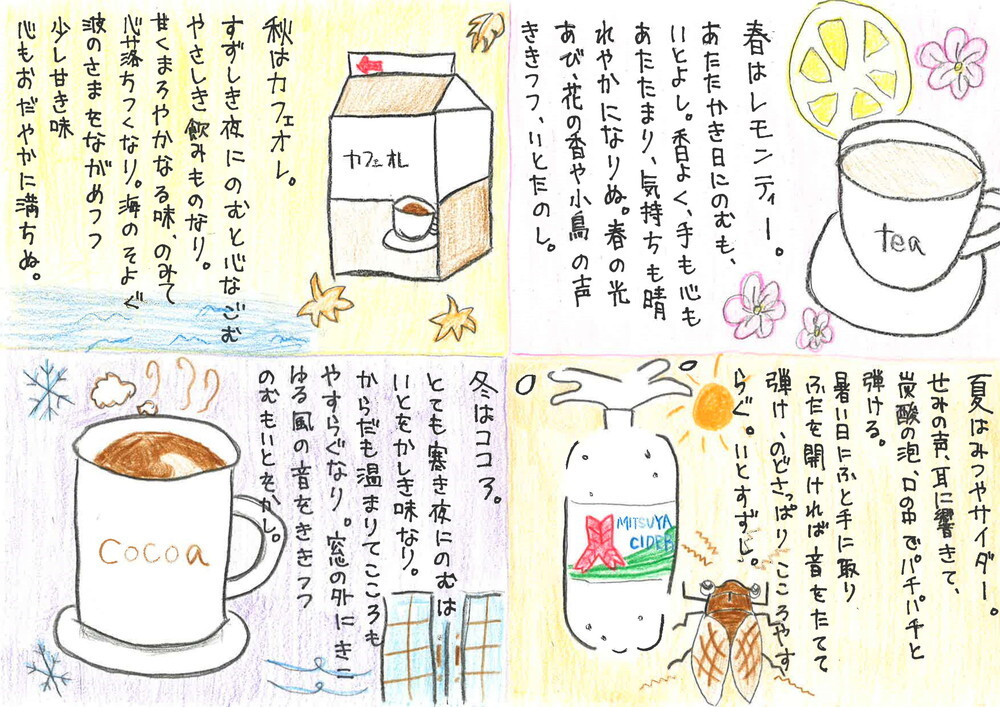 春はレモンティー。
あたたかき日にのむも、
いとよし。香よく、手も心も
あたたまり、気持ちも晴
れやかになりぬ。春の光
あび、花の香や小鳥の声
ききつつ、いとたのし。
tea
夏はみつやサイダー。
せみの声、耳に響きて、
炭酸の泡、口の中でパチパチと
弾ける。
暑い日にふと手に取り
ふたを開ければ音をたてて
弾け、のどさっぱり、こころやす
らぐ。いとすずし。
MITSUYA
CIDER
秋はカフェオレ。
すずしき夜にのむと心なごむ
やさしき飲みものなり。
甘くまろやかなる味、のみて
心落ちつくなり。海のそよぐ
波のさまをながめつつ
少し甘き味
心もおだやかに満ちぬ。
カフェオレ
冬はココア。
とても寒き夜にのむは
いとをかしき味なり。
からだも温まりてこころも
やすらぐなり。窓の外にきこ
ゆる風の音をききつつ
のむもいとをかし。
cocoa